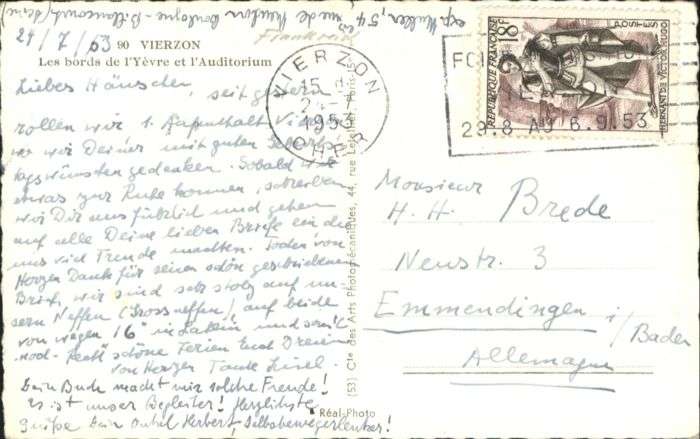 exp. Müller, 54 rue de
Boulogne-Billancourt (Seine)
Frankreich
24/7/53
90 VIERZON
Les bords de l'Yèvre et l'Auditorium
Liebes Hänschen,
seit gestern
rollen wir, 1. Aufenthalt Vierzon
wo wir Deiner mit guten Geburts-
tagswünschen gedenken. Sobald wir
etwas zur Ruhe kommen, schreiben
wir Dir ausführlich und gehen
auf alle Deine lieben Briefe ein die
uns viel Freude machten. von
Herzen Dank für seinen schön geschriebenen
Brief, wir sind sehr stolz auf un-
sern Neffen (Grossneffen) auf beide
von wegen 16 in Latein und
schöne Ferien Euch Dreien
von Herzen Tante Liesel.
Dein Buch macht mir solche Freude!
Es ist unser Begleiter! Herzlichste
Grüße Dein Onkel Herbert Selbstbewegerlenker!
VIERZON
15 H
24-7
1953
CHER
29.8 AU 6.9.53
REPUBLIQUE FRANÇAISE
18F
POSTES
HERNANI DE VICTOR HUGO
(53) Cie des Arts Photomécaniques, 44, rue Letellier, Paris
Réal-Photo
Monsieur
H. H. Brede
Neustr. 3
Emmendingen i/Baden
Allemagne